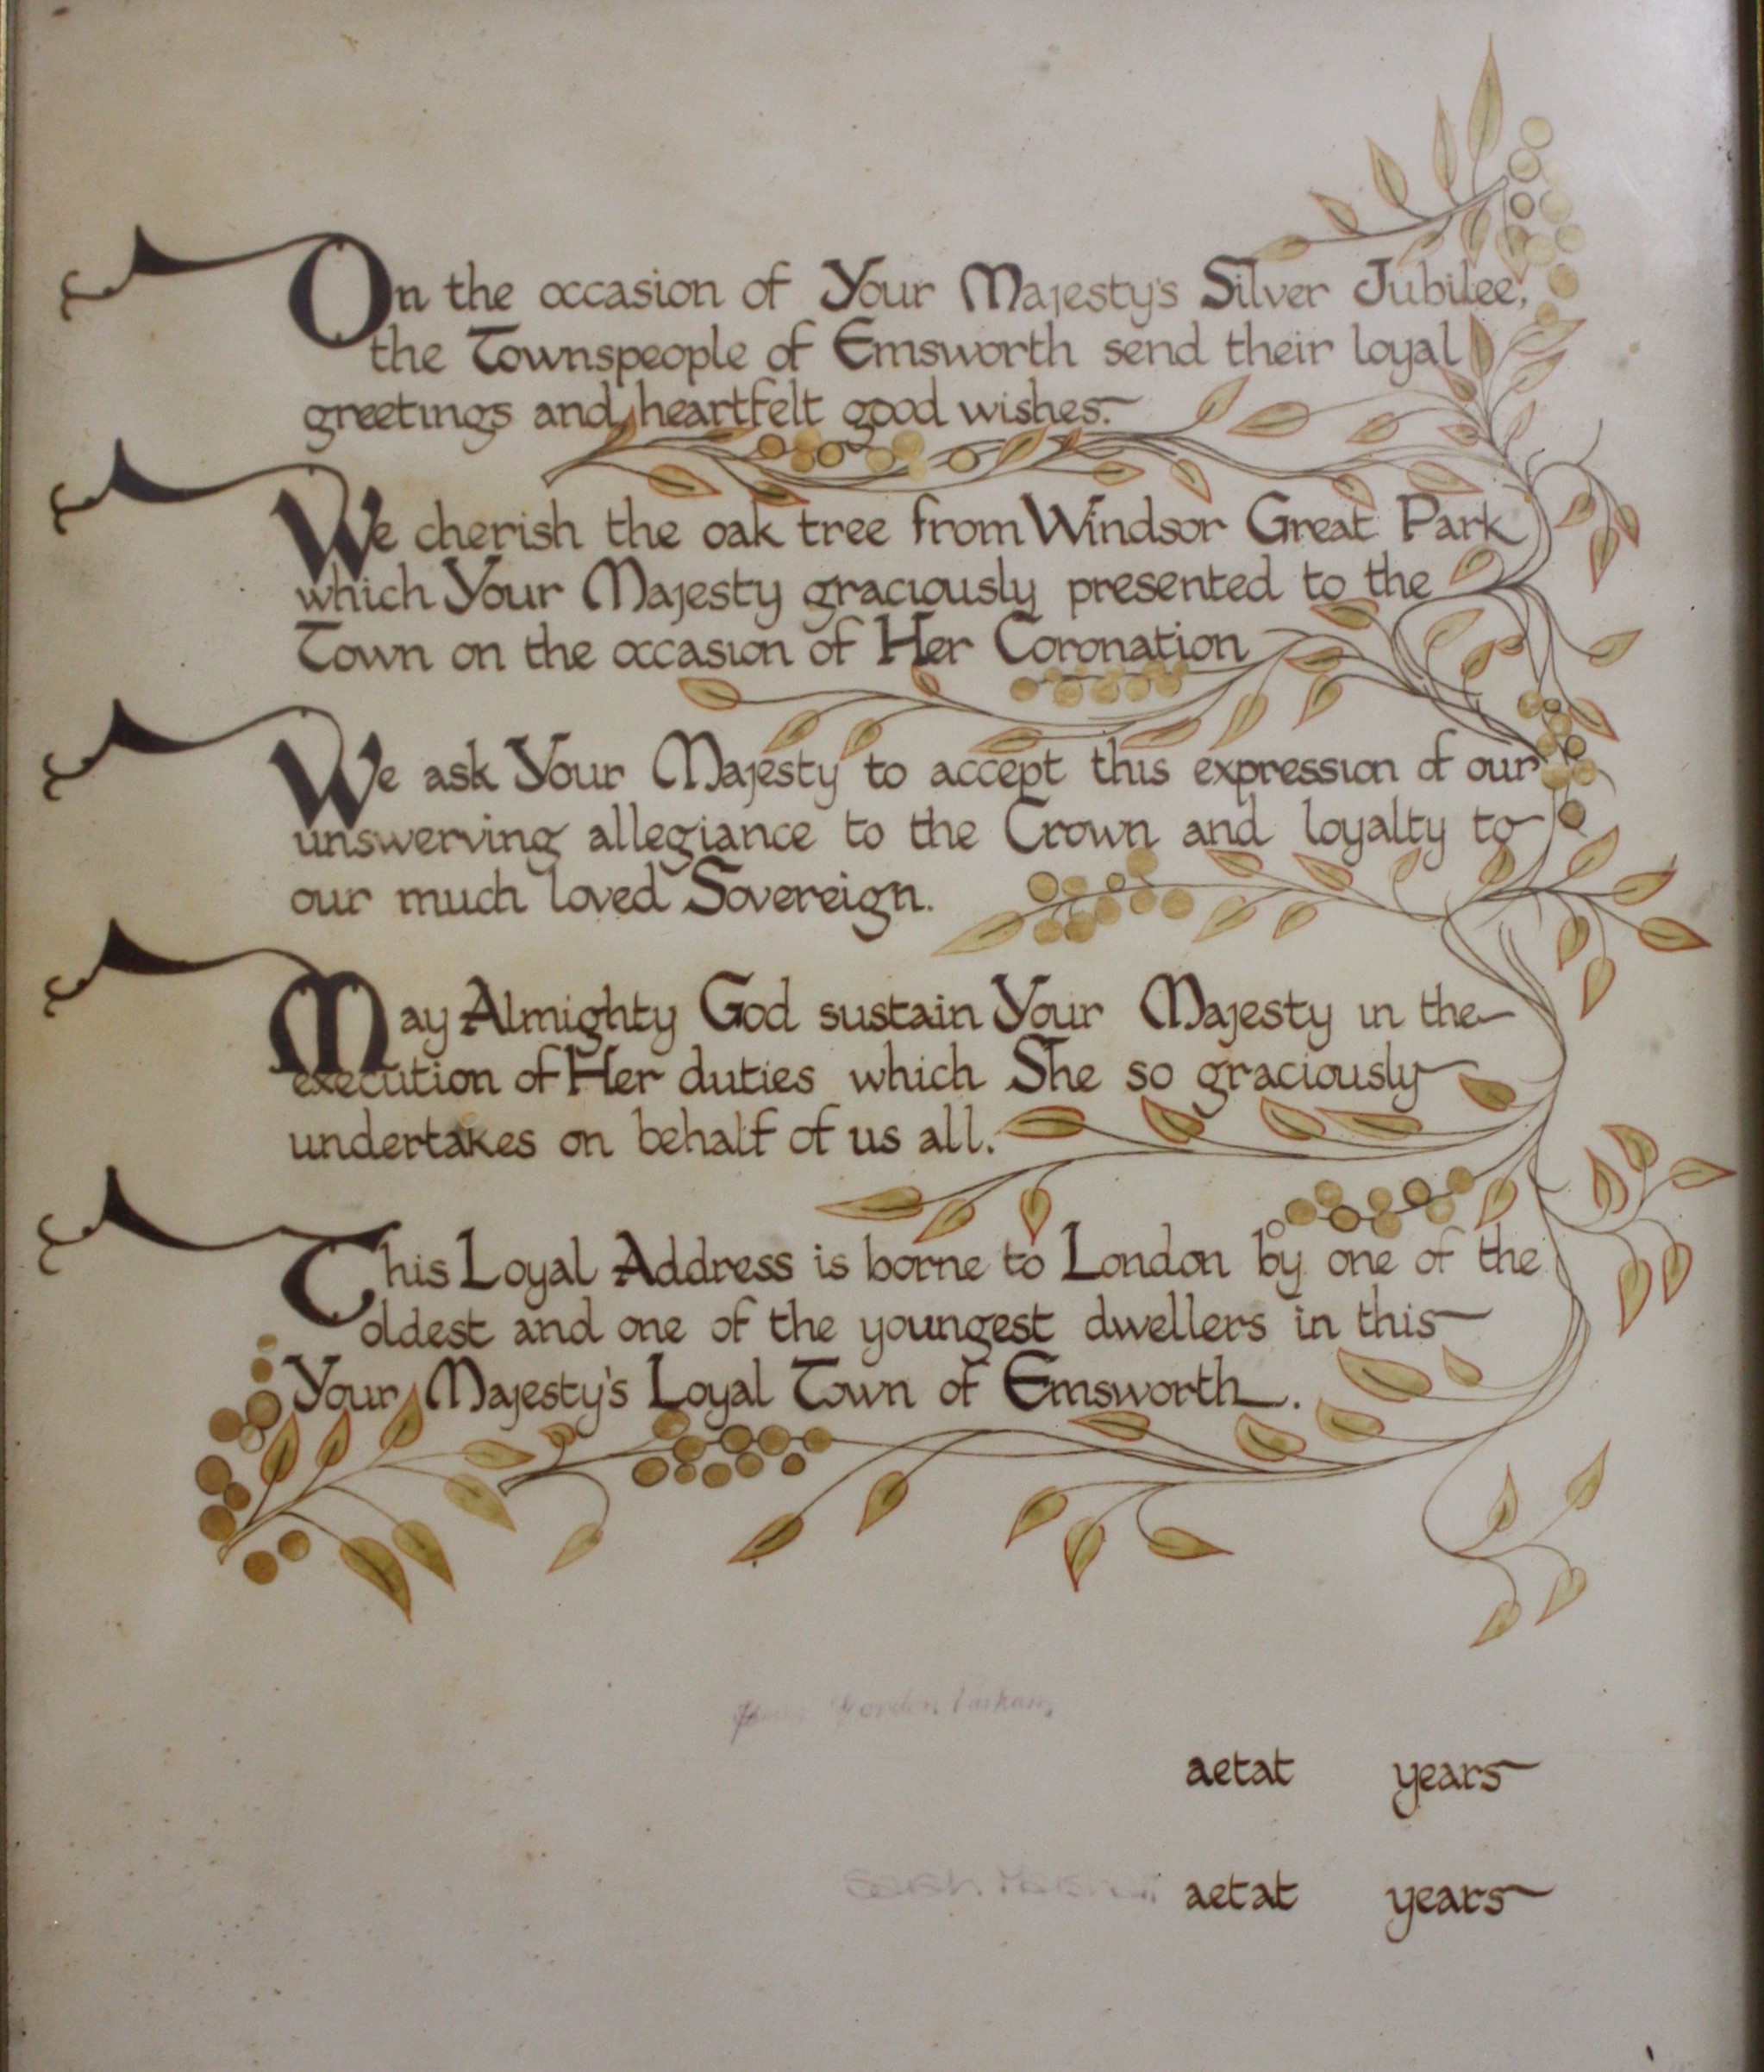 On the occasion of Your Majesty's Silver Jubilee,
the Townspeople of Emsworth send their loyal
greetings and heartfelt good wishes.
We cherish the oak tree from Windsor Great Park
which Your Majesty graciously presented to the
Town on the occasion of Her Coronation
We ask Your Majesty to accept this expression of our
unswerving allegiance to the Crown and loyalty to
our much loved Sovereign.
May Almighty God sustain Your Majesty in the
execution of Her duties which She so graciously
undertakes on behalf of us all.
This Loyal Address is borne to London by one of the
oldest and one of the youngest dwellers in this
Your Majesty's Loyal Town of Emsworth.
Gordon
aetat years
Sarah aetat years